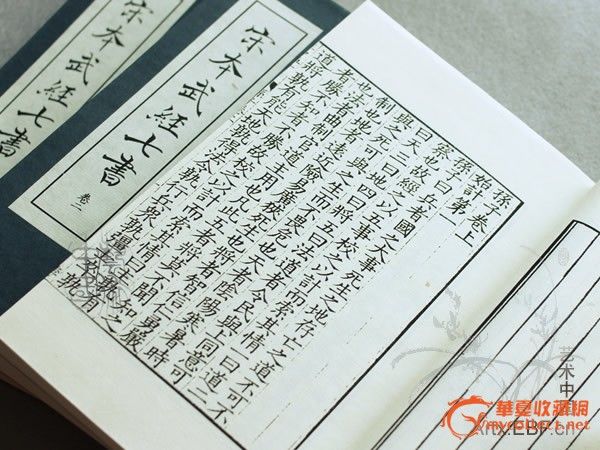 宋本武經七書
卷二
武經七書
孫子卷上
始計第一
孫子曰兵者國之大事死生之地存亡之道不可不
察也故經之以五事校之以計而索其情一曰道二
曰天三曰地四曰將五曰法道者令民與上同意可
與之死可與之生而不畏危也天者陰陽寒暑時
制也地者遠近險易廣狹死生也將者智信仁勇嚴
也法者曲制官道主用也凡此五者將莫不聞知之
者勝不知者不勝故校之以計而索其情曰主孰有
道將孰有能天地孰得法令孰行兵衆孰強士卒孰
艺术中
華夏收藏網
mycollect.net